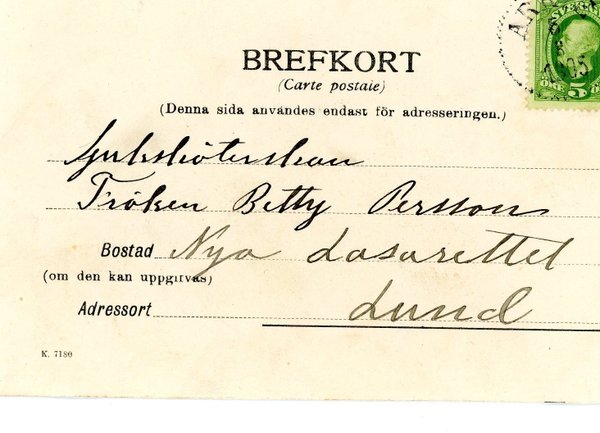 BREFKORT
(Carte postale)
(Denna sida användes endast för adresseringen.)
Sjuksköterskan
Fröken Betty Persson
Bostad Nya Lasarettet
(om den kan uppgifvas)
Adressort Lund
K. 7180
1905
5
ÖRE